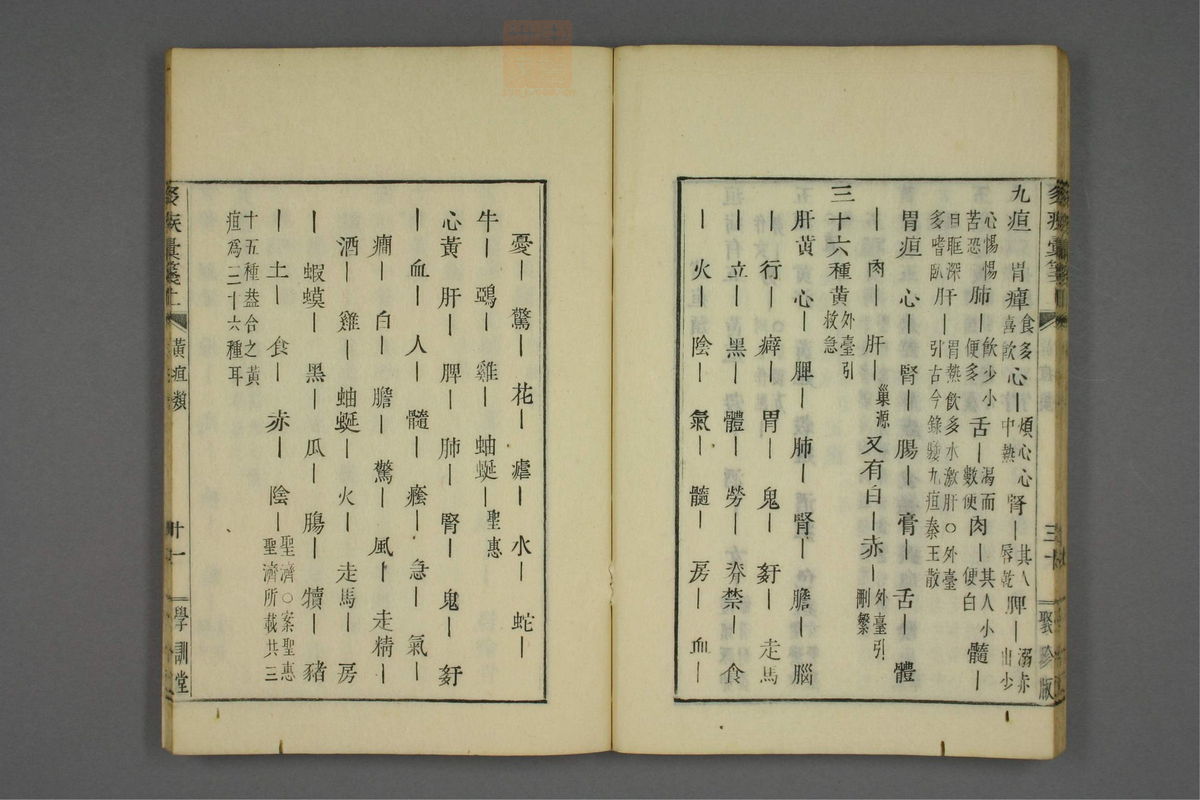 九疸 胃癉食多喜飲 心｜煩心心中熱 腎｜其人唇乾 脾｜溺赤出少
心惕惕苦恐 肺｜飲少小便多 舌｜渴而數便 肉｜其人小便白 髓｜
目眶深多嗜臥 肝｜胃熱飲多水激肝○外臺引古今錄驗九疸秦王散
胃疸 心｜ 腎｜ 腸｜ 膏｜ 舌｜ 體
｜ 肉｜ 肝｜巢源 又有白｜赤｜外臺引刪繁
三十六種黃外臺引救急
肝黃 心｜ 脾｜ 肺｜ 腎｜ 膽｜ 腦
｜ 行｜ 癖｜ 胃｜ 鬼｜ 䚡｜ 走馬
｜ 立｜ 黑｜ 體｜ 勞｜ 脊禁｜ 食
｜ 火｜ 陰｜ 氣｜ 髓｜ 房｜ 血｜
聚珍版
憂｜ 驚｜ 花｜ 瘧｜ 水｜ 蛇｜
牛｜ 鵶｜ 雞｜ 蚰蜒｜聖惠
心黃 肝｜ 脾｜ 肺｜ 腎｜ 鬼｜ 䚡
｜ 血｜ 人｜ 髓｜ 癊｜ 急｜ 氣｜
癎｜ 白｜ 膽｜ 驚｜ 風｜ 走精｜
酒｜ 雞｜ 蚰蜒｜ 火｜ 走馬｜ 房
｜ 蝦蟆｜ 黑｜ 瓜｜ 腸｜ 犢｜ 豬
｜ 土｜ 食｜ 赤｜ 陰｜聖濟○案聖惠聖濟所載共三
十五種蓋合之黃疸爲三十六種耳
黃疸類
十一
學訓堂